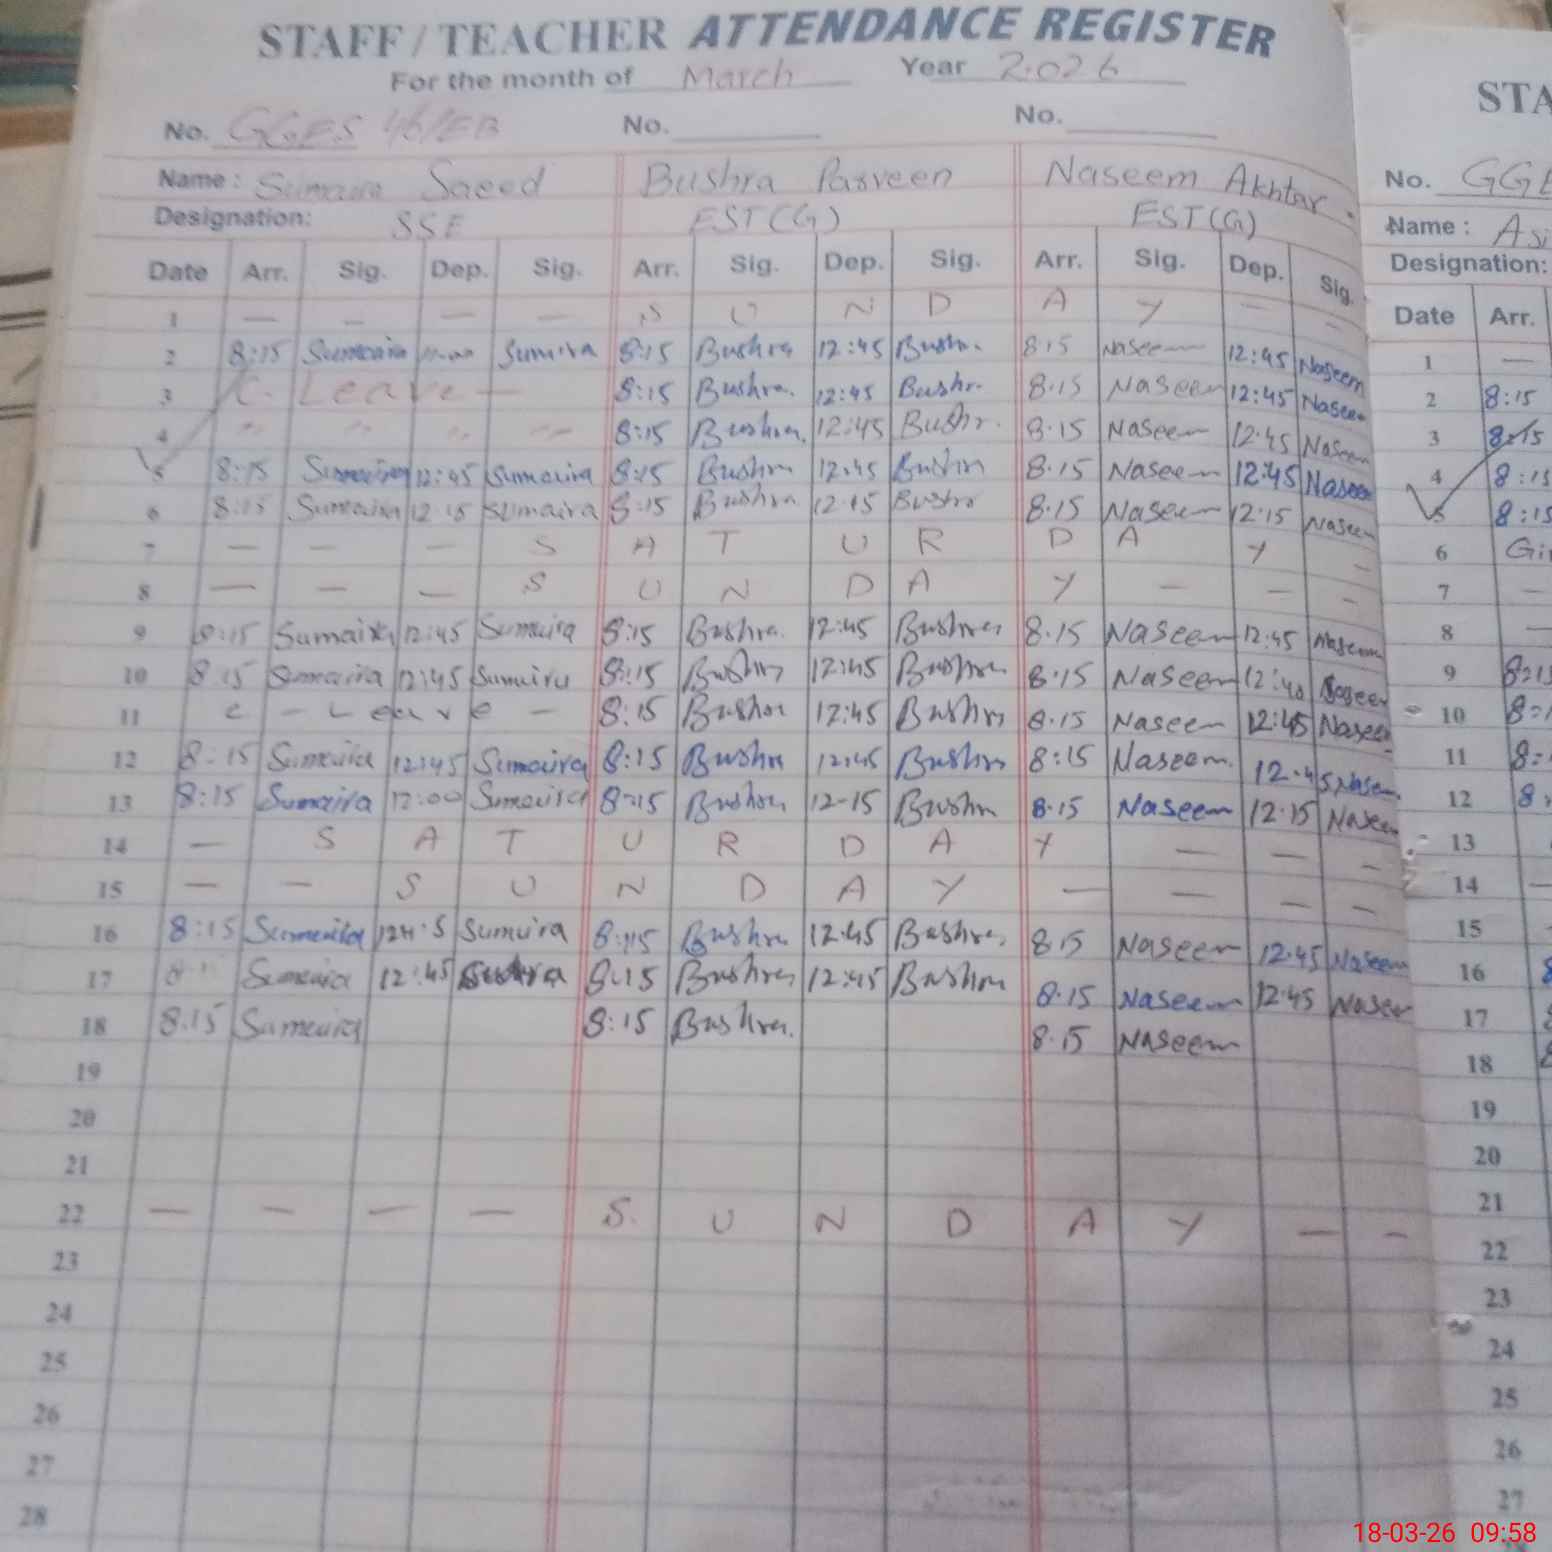 STAFF / TEACHER ATTENDANCE REGISTER
For the month of March Year 2026
No. GGES 46/EB No. No.
Name : Sumaira Saeed Bushra Parveen Naseem Akhtar
Designation: SSE EST(G) EST(G)
Date Arr. Sig. Dep. Sig. Arr. Sig. Dep. Sig. Arr. Sig. Dep. Sig.
1 — — — — S U N D A Y — —
2 8:15 Sumaira Sumaira 8:15 Bushra 12:45 Bushra 8.15 Naseem 12:45 Naseem
3 C. Leave — 8:15 Bushra. 12:45 Bushr. 8.15 Naseem 12:45 Naseem
4 " " " " 8:15 Bushra. 12:45 Bushr. 8.15 Naseem 12.45 Naseem
5 8:15 Sumaira 12:45 Sumaira 8:15 Bushra 12:45 Bushra 8.15 Naseem 12:45 Naseem
6 8:15 Sumaira 12:15 Sumaira 8:15 Bushra 12:15 Bushra 8.15 Naseem 12.15 Naseem
7 — — — S A T U R D A Y —
8 — — — S U N D A Y — — —
9 8:15 Sumaira 12:45 Sumaira 8:15 Bushra. 12:45 Bushra 8.15 Naseem 12:45 Naseem
10 8:15 Sumaira 12:45 Sumaira 8:15 Bushra 12:45 Bushra 8.15 Naseem Naseem
11 C - Leave - 8:15 Bushra 12:45 Bushra 8.15 Naseem 12:45 Naseem
12 8:15 Sumaira 12:45 Sumaira 8:15 Bushra 12:45 Bushra 8:15 Naseem. 12.45 Naseem
13 8:15 Sumaira 12:00 Sumaira 8:15 Bushra 12-15 Bushra 8.15 Naseem 12.15 Naseem
14 — S A T U R D A Y — — —
15 — — S U N D A Y — — — —
16 8:15 Sumaira Sumaira 8:15 Bushra 12:45 Bushra 8.15 Naseem 12.45 Naseem
17 Sumaira 12:45 8:15 Bushra 12:45 Bushra 8.15 Naseem 12.45 Naseem
18 8.15 Sumaira 8:15 Bushra. 8.15 Naseem
19
20
21
22 — — — — S. U N D A Y — —
23
24
25
26
27
28
STA
No. GGE
Name : Asi
Designation:
Date Arr.
1 —
2 8:15
3 8:15
4 8:15
5 8:15
6
7 —
8 —
9
10
11
12
13
14 —
15
16
17
18
19
20
21
22
23
24
25
26
27
18-03-26 09:58